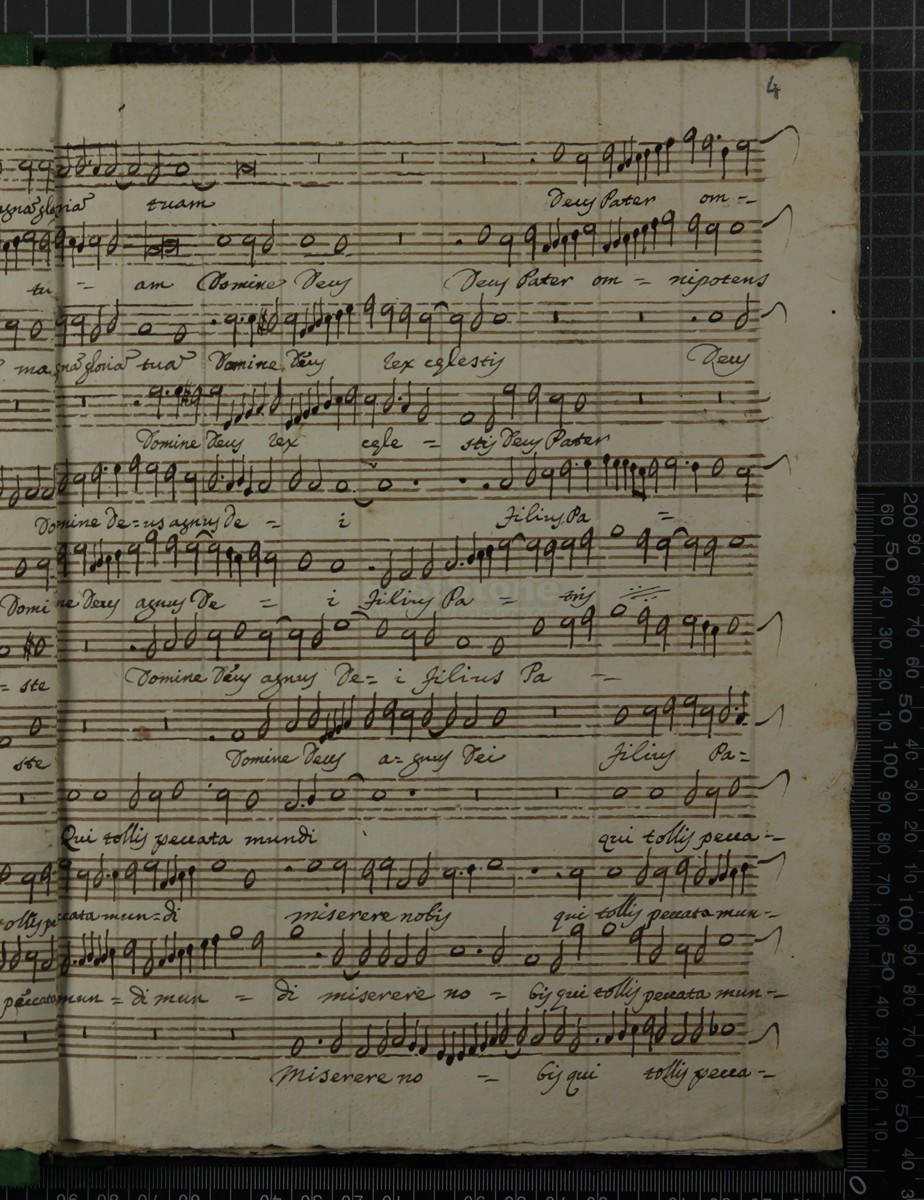 4
gloria tuam Deus Pater om-
tu - am Domine Deus Deus Pater om = nipotens
magna gloria tua Domine Deus rex cęlestis Deus
Domine Deus rex cęle = stis Deus Pater
Domine De=us agnus De = i Filius Pa =
Domine Deus agnus De = i Filius Pa = tris
= ste Domine Deus agnus De= i Filius Pa -
ste Domine Deus a= gnus Dei Filius Pa=
Qui tollis peccata mundi qui tollis pecca-
tollis peccata mun=di miserere nobis qui tollis peccata mun-
peccata mun = di mun = di miserere no = bis qui tollis peccata mun-
Miserere no = bis qui tollis pecca-